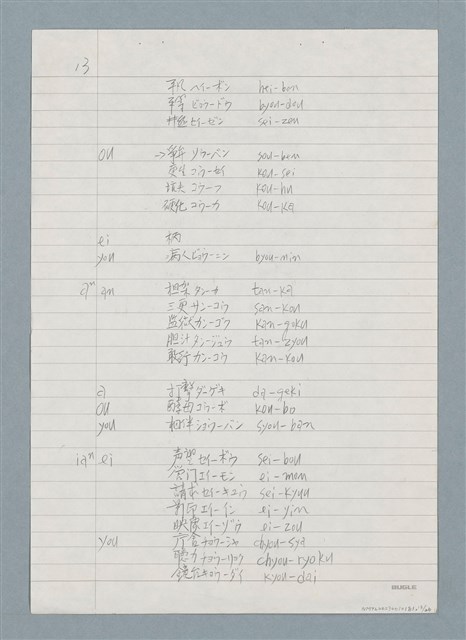 13
平凡 ヘイーボン hei-bon
平等 ビョウードウ byou-dou
性善 セイーゼン sei-zen
ou →争弁 ソウーベン sou-ben
更生 コウーセイ kou-sei
坑夫 コウーフ kou-hu
硬化 コウーカ kou-ka
ei 柄
you 病人 ビョウーニン byou-nin
aⁿ an 担架 タンーカ tan-ka
三更 サンーコウ san-kou
監獄 カンーゴク kan-goku
胆汁 タンージュウ tan-zyou
敢行 カンーコウ kan-kou
a 打撃 ダーゲキ da-geki
ou 酵母 コウーボ kou-bo
you 相伴 ショウーバン syou-ban
iaⁿ ei 声望 セイーボウ sei-bou
営門 エイーモン ei-mon
請求 セイーキュウ sei-kyuu
影印 エイーイン ei-yin
映像 エイーゾウ ei-zou
you 庁舎 チョウーシャ chyou-sya
聴力 チョウーリョク chyou-ryoku
鏡台 キョウーダイ kyou-dai
BUGLE